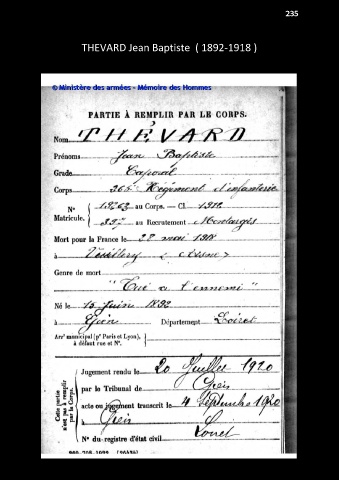 235
THEVARD Jean Baptiste ( 1892-1918 )
© Ministère des armées - Mémoire des Hommes
PARTIE À REMPLIR PAR LE CORPS.
Nom THÉVARD
Prénoms Jean Baptiste
Grade Caporal
Corps 366e Régiment d'infanterie
N° Matricule. 13763 au Corps. — Cl. 1912
397 au Recrutement Montargis
Mort pour la France le 28 mai 1918
à (Aisne)
Genre de mort
"Tué à l'ennemi"
Né le 15 Juin 1892
à Gien Département Loiret
Arr^t municipal (p^r Paris et Lyon), à défaut rue et N°.
Cette partie n'est pas à remplir par le Corps.
Jugement rendu le 20 Juillet 1920
par le Tribunal de Gien
acte ou jugement transcrit le 4 Septembre 1920
à Gien
Loiret
N° du registre d'état civil